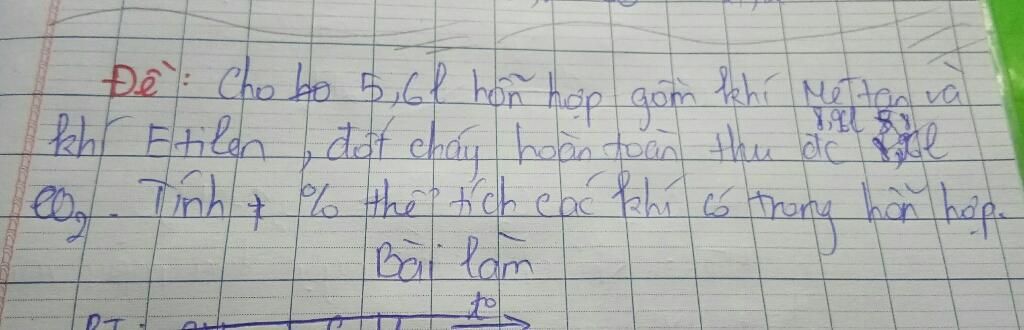 Đề: Cho 5,6l hỗn hợp gồm khí Mêtan và
khí Etilen, đốt cháy hoàn toàn thu đc 8,96l
CO2. Tính % thể tích các khí có trong hỗn hợp.
Bài làm
PT: t°